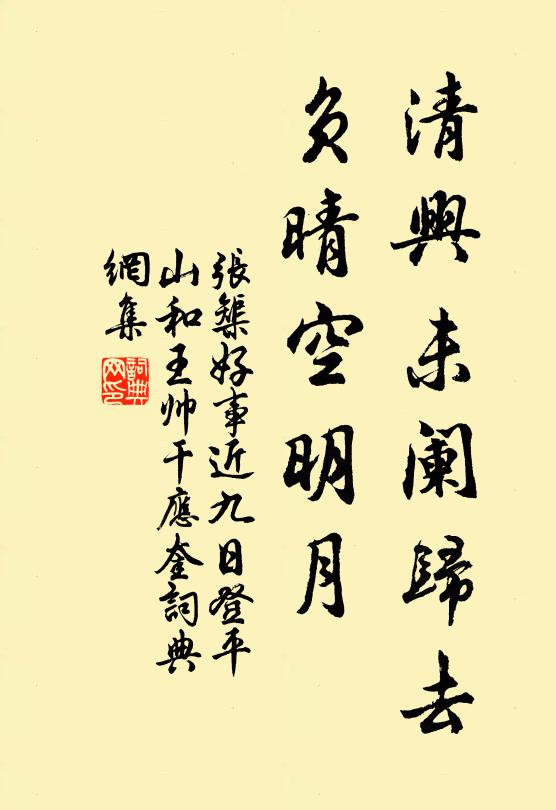 清興未闌歸去
負晴空明月
張榘好事近九日登平
山和王帅干應奎詞典
網集
詞典
网印